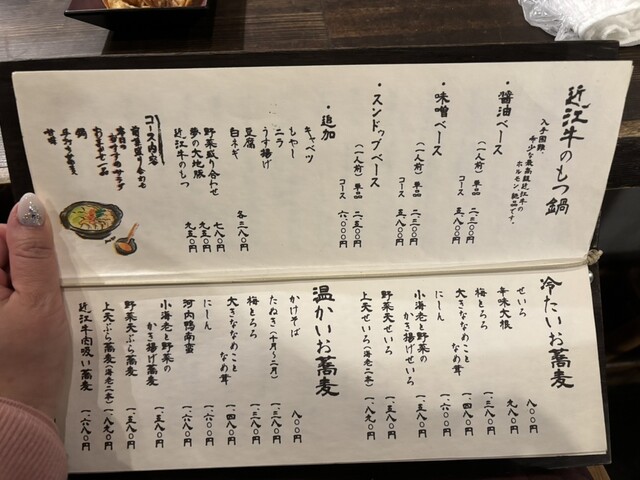 近江牛のもつ鍋
入手困難、
希少な最高級近江牛の
ホルモン、絶品です。
・醤油ベース
(一人前) 単品 二、二〇〇円
コース 五、八〇〇円
・味噌ベース
(一人前) 単品 二、二〇〇円
コース 五、八〇〇円
・スンドゥブベース
(一人前) 単品 二、五〇〇円
コース 六、〇〇〇円
・追加
キャベツ
もやし
ニラ
うす揚げ
豆腐
白ネギ
各 二八〇円
野菜盛り合わせ 七八〇円
夢の大地豚 九五〇円
近江牛のもつ 九五〇円
コース内容
前菜盛り合わせ
鍋
甘味
冷たいお蕎麦
せいろ 八〇〇円
辛味大根 九八〇円
梅とろろ 一、二八〇円
大きななめこと
なめ茸 一、四八〇円
にしん 一、六〇〇円
小海老と野菜の
かき揚げせいろ 一、五八〇円
野菜天せいろ 一、五八〇円
上天せいろ(海老二本) 一、八九〇円
温かいお蕎麦
かけそば 八〇〇円
たぬき(十月〜二月) 一、二八〇円
梅とろろ 一、二八〇円
大きななめこと
なめ茸 一、四八〇円
にしん 一、六〇〇円
河内鴨南蛮 一、六八〇円
小海老と野菜の
かき揚げ蕎麦 一、五八〇円
野菜天ぷら蕎麦 一、五八〇円
上天ぷら蕎麦(海老二本) 一、八九〇円
近江牛肉吸い蕎麦 一、六八〇円